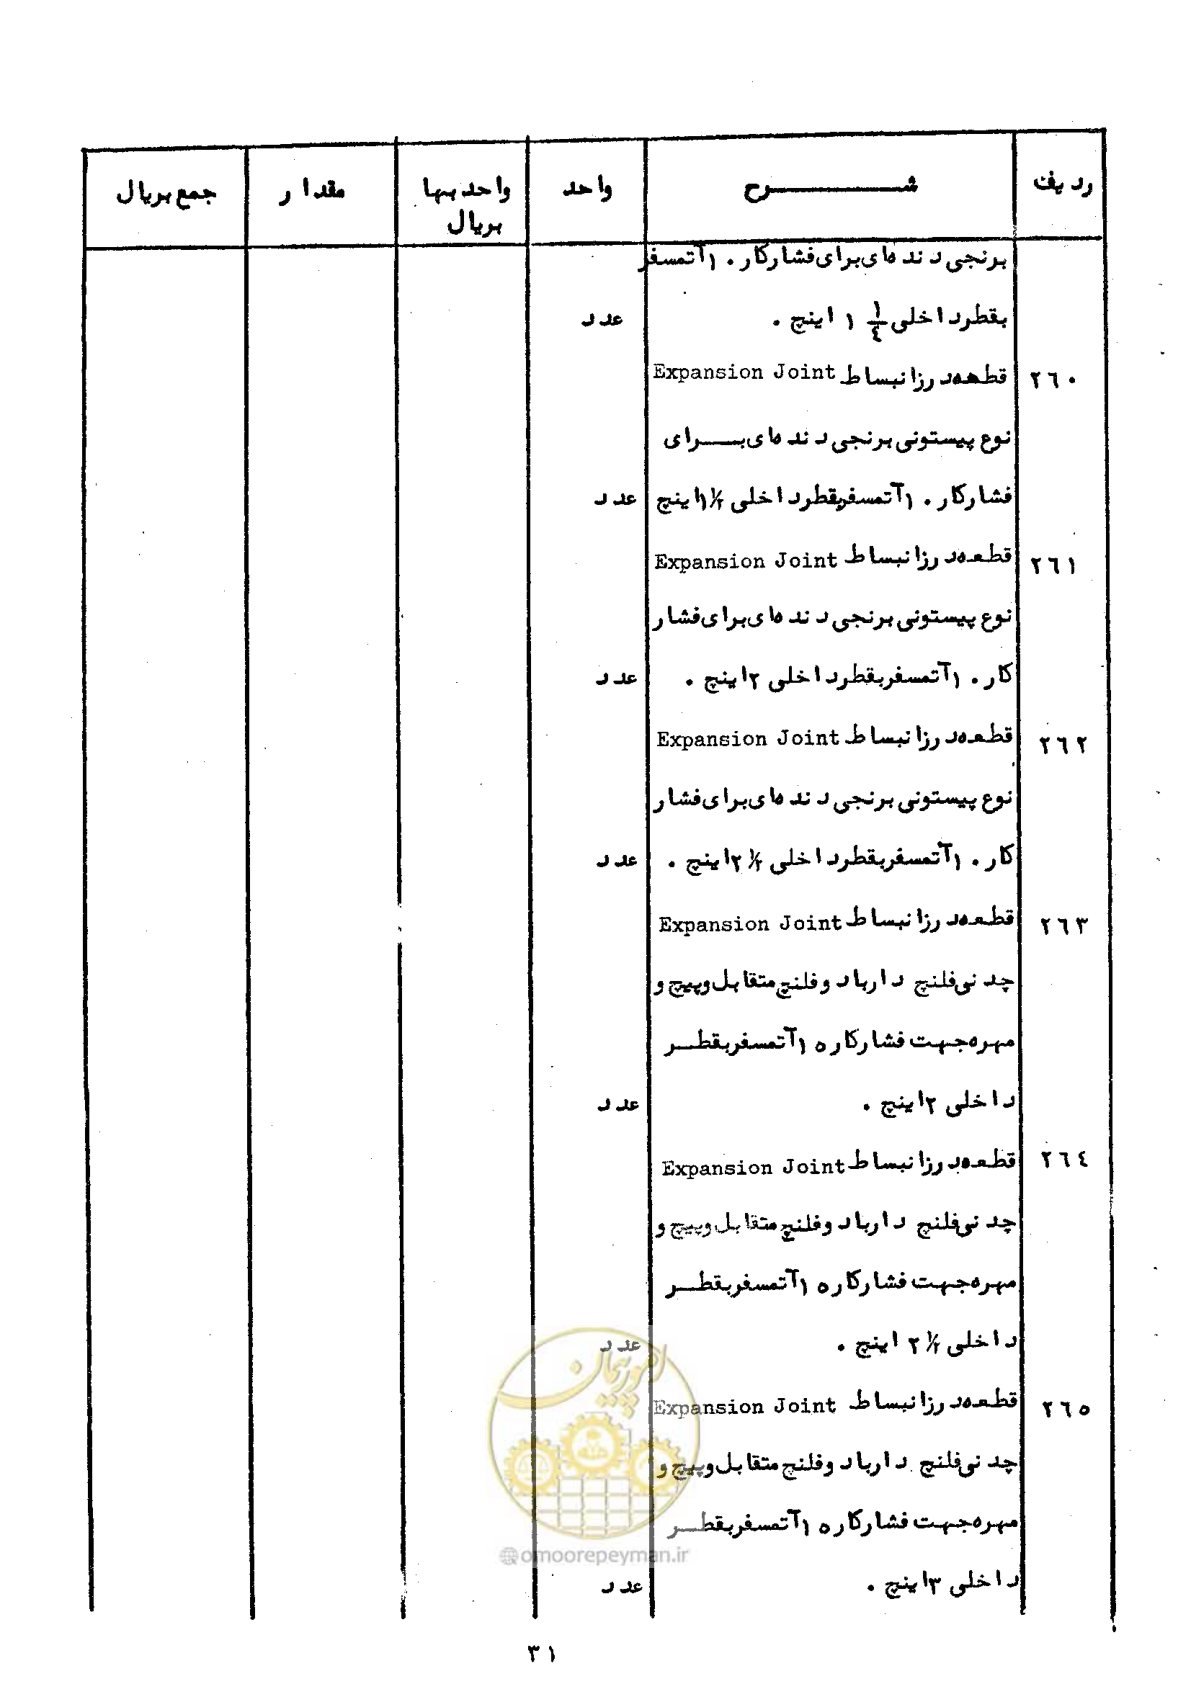 ردیف شرح واحد واحد بها مقدار جمع بریال
بریال
برنجی دنده‌ای برای فشار کار ۱۰ آتمسفر
بقطر داخلی ۱ ۱/۴ اینچ . عدد
۲۶۰ قطعه درز انبساط Expansion Joint
نوع پیستونی برنجی دنده‌ای برای
فشار کار ۱۰ آتمسفر بقطر داخلی ۱ ۱/۲ اینچ عدد
۲۶۱ قطعه درز انبساط Expansion Joint
نوع پیستونی برنجی دنده‌ای برای فشار
کار ۱۰ آتمسفر بقطر داخلی ۲ اینچ . عدد
۲۶۲ قطعه درز انبساط Expansion Joint
نوع پیستونی برنجی دنده‌ای برای فشار
کار ۱۰ آتمسفر بقطر داخلی ۲ ۱/۲ اینچ . عدد
۲۶۳ قطعه درز انبساط Expansion Joint
چدنی فلنج دار با دو فلنج متقابل و پیچ و
مهره جهت فشار کار ۱۵ آتمسفر بقطر
داخلی ۲ اینچ . عدد
۲۶۴ قطعه درز انبساط Expansion Joint
چدنی فلنج دار با دو فلنج متقابل و پیچ و
مهره جهت فشار کار ۱۵ آتمسفر بقطر
داخلی ۲ ۱/۲ اینچ . عدد
۲۶۵ قطعه درز انبساط Expansion Joint
چدنی فلنج دار با دو فلنج متقابل و پیچ و
مهره جهت فشار کار ۱۵ آتمسفر بقطر
داخلی ۳ اینچ . عدد
امور پیمان
@omoorepeyman.ir
۳۱